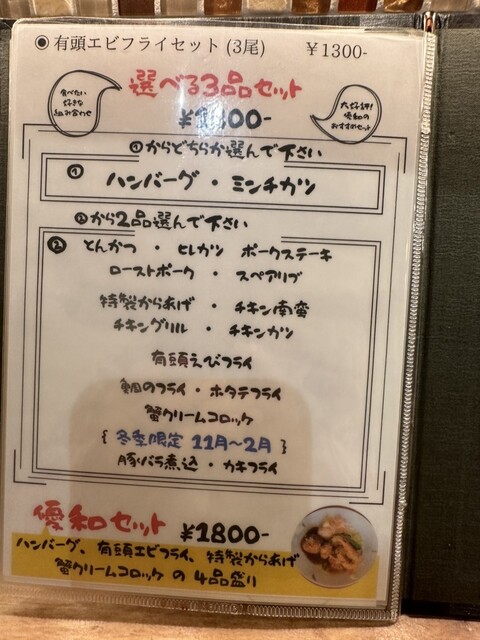 ◉ 有頭エビフライセット (3尾) ￥1300-
食べたい
好きな
組み合わせ
選べる3品セット
大好評!
優和の
おすすめセット
①からどちらか選んで下さい
① ハンバーグ ・ ミンチカツ
②から2品選んで下さい
② とんかつ ・ ヒレカツ ポークステーキ
ローストポーク ・ スペアリブ
特製からあげ ・ チキン南蛮
チキングリル ・ チキンカツ
有頭えびフライ
鯛のフライ ・ ホタテフライ
蟹クリームコロッケ
{ 冬季限定 11月〜2月 }
豚バラ煮込 ・ カキフライ
優和セット ￥1800-
ハンバーグ、有頭エビフライ、特製からあげ
蟹クリームコロッケ の 4品盛り